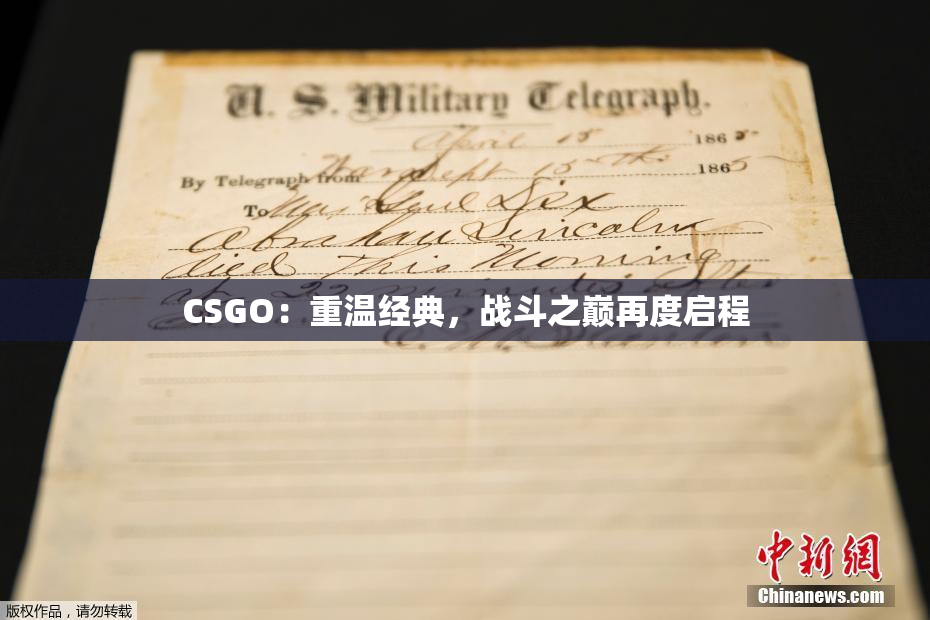 U. S. Military Telegraph.
April 15 1865
By Telegraph from War Dept 15th 1865
To Maj Genl Dix
Abraham Lincoln
died This Morning
at 22 minutes after
CSGO：重温经典，战斗之巅再度启程
E. M. Stanton
中新网
Chinanews.com
版权作品，请勿转载